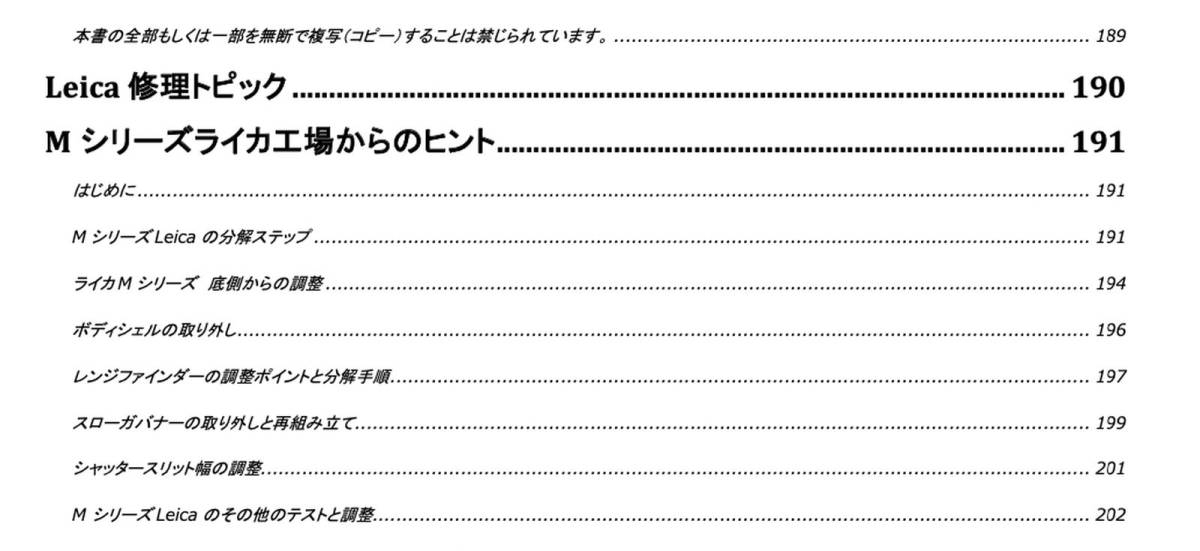 本書の全部もしくは一部を無断で複写(コピー)することは禁じられています。 ........ 189
Leica 修理トピック ........ 190
M シリーズライカ工場からのヒント ........ 191
はじめに ........ 191
M シリーズLeica の分解ステップ ........ 191
ライカM シリーズ 底側からの調整 ........ 194
ボディシェルの取り外し ........ 196
レンジファインダーの調整ポイントと分解手順 ........ 197
スローガバナーの取り外しと再組み立て ........ 199
シャッタースリット幅の調整 ........ 201
M シリーズLeica のその他のテストと調整 ........ 202